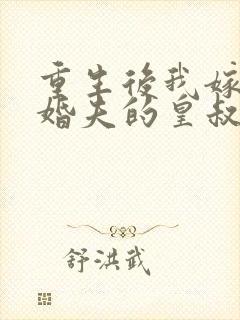 重生後我嫁
婚夫的皇叔
舒洪武